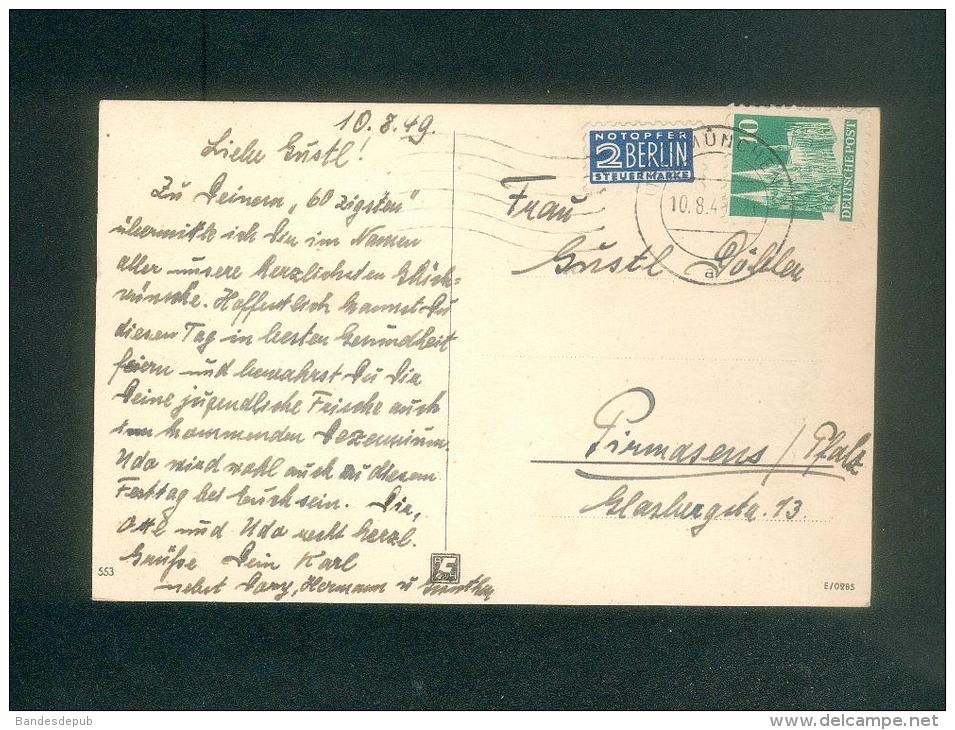 10.8.49.
Liebe Gustl!
Zu Deinem „60 zigsten"
übermittle ich Dir im Namen
aller unsere herzlichsten Glück-
wünsche. Hoffentlich kannst Du
diesen Tag in besten Gesundheit
feiern und bewahrst Du Dir
Deine jugendliche Frische auch
im kommenden Dezennium.
Udo wird wohl auch zu diesem
Festtag bei Euch sein. Dir,
Otto und Udo recht herzl.
Grüsse Dein Karl
nebst Dary, Hermann u Günther
553
NOTOPFER
2 BERLIN
STEUERMARKE
MÜNCHEN
10.8.49
a
10
DEUTSCHE POST
Frau
Gustl
Pirmasens / Pfalz
Glasbergstr. 13.
E/0285
Bandesdepub
www.delcampe.net